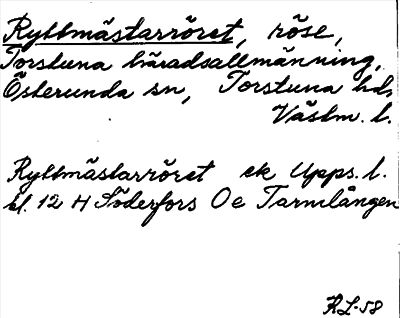 Ryttmästarröret, röse,
Torstuna häradsallmänning,
Österunda sn, Torstuna hd,
Västm. l.
Ryttmästarröret ek Upps. l.
bl. 12 H Söderfors Oe Tarmlången
RL-58